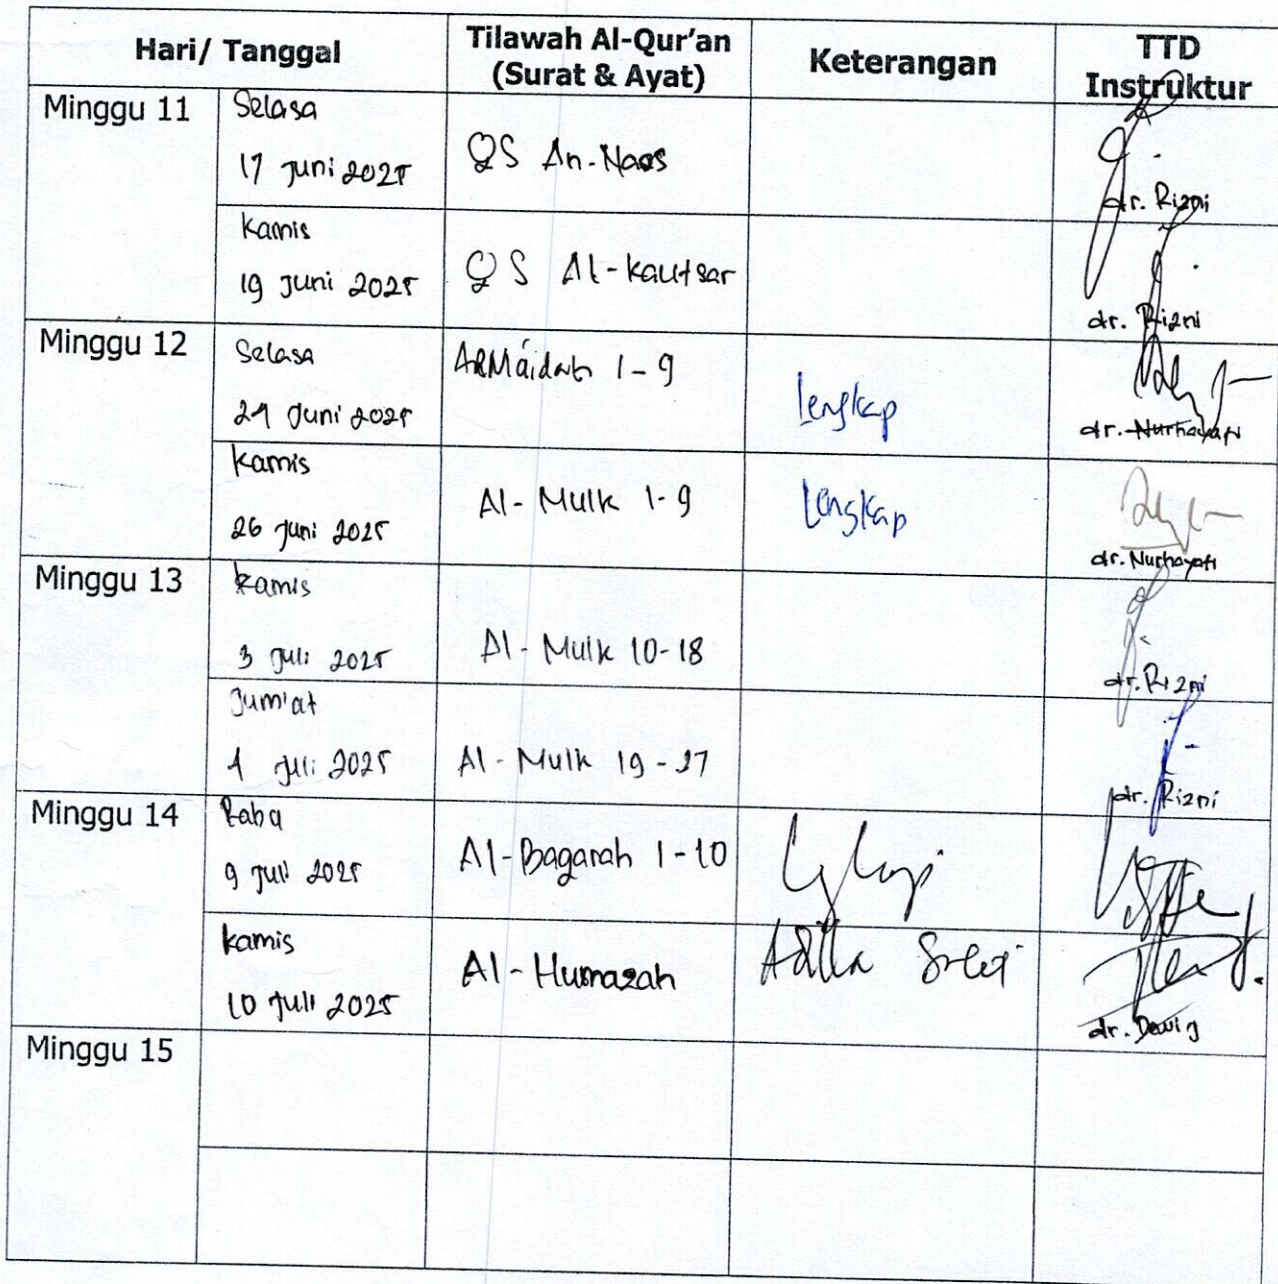 Hari/ Tanggal
Tilawah Al-Qur'an
(Surat & Ayat)
Keterangan
TTD
Instruktur
Minggu 11
Selasa
17 Juni 2025
QS An-Naas
dr. Rizni
Kamis
19 Juni 2025
QS Al-kautsar
dr. Rizni
Minggu 12
Selasa
24 Juni 2025
1-9
Lengkap
dr. Nurhayati
Kamis
26 Juni 2025
Al-Mulk 1-9
Lengkap
dr. Nurhayati
Minggu 13
Kamis
3 Juli 2025
Al-Mulk 10-18
dr. Rizni
Jum'at
4 Juli 2025
Al-Mulk 19-27
dr. Rizni
Minggu 14
Rabu
9 Juli 2025
Al-Baqarah 1-10
Kamis
10 Juli 2025
Al-Humazah
dr. Dewi
Minggu 15